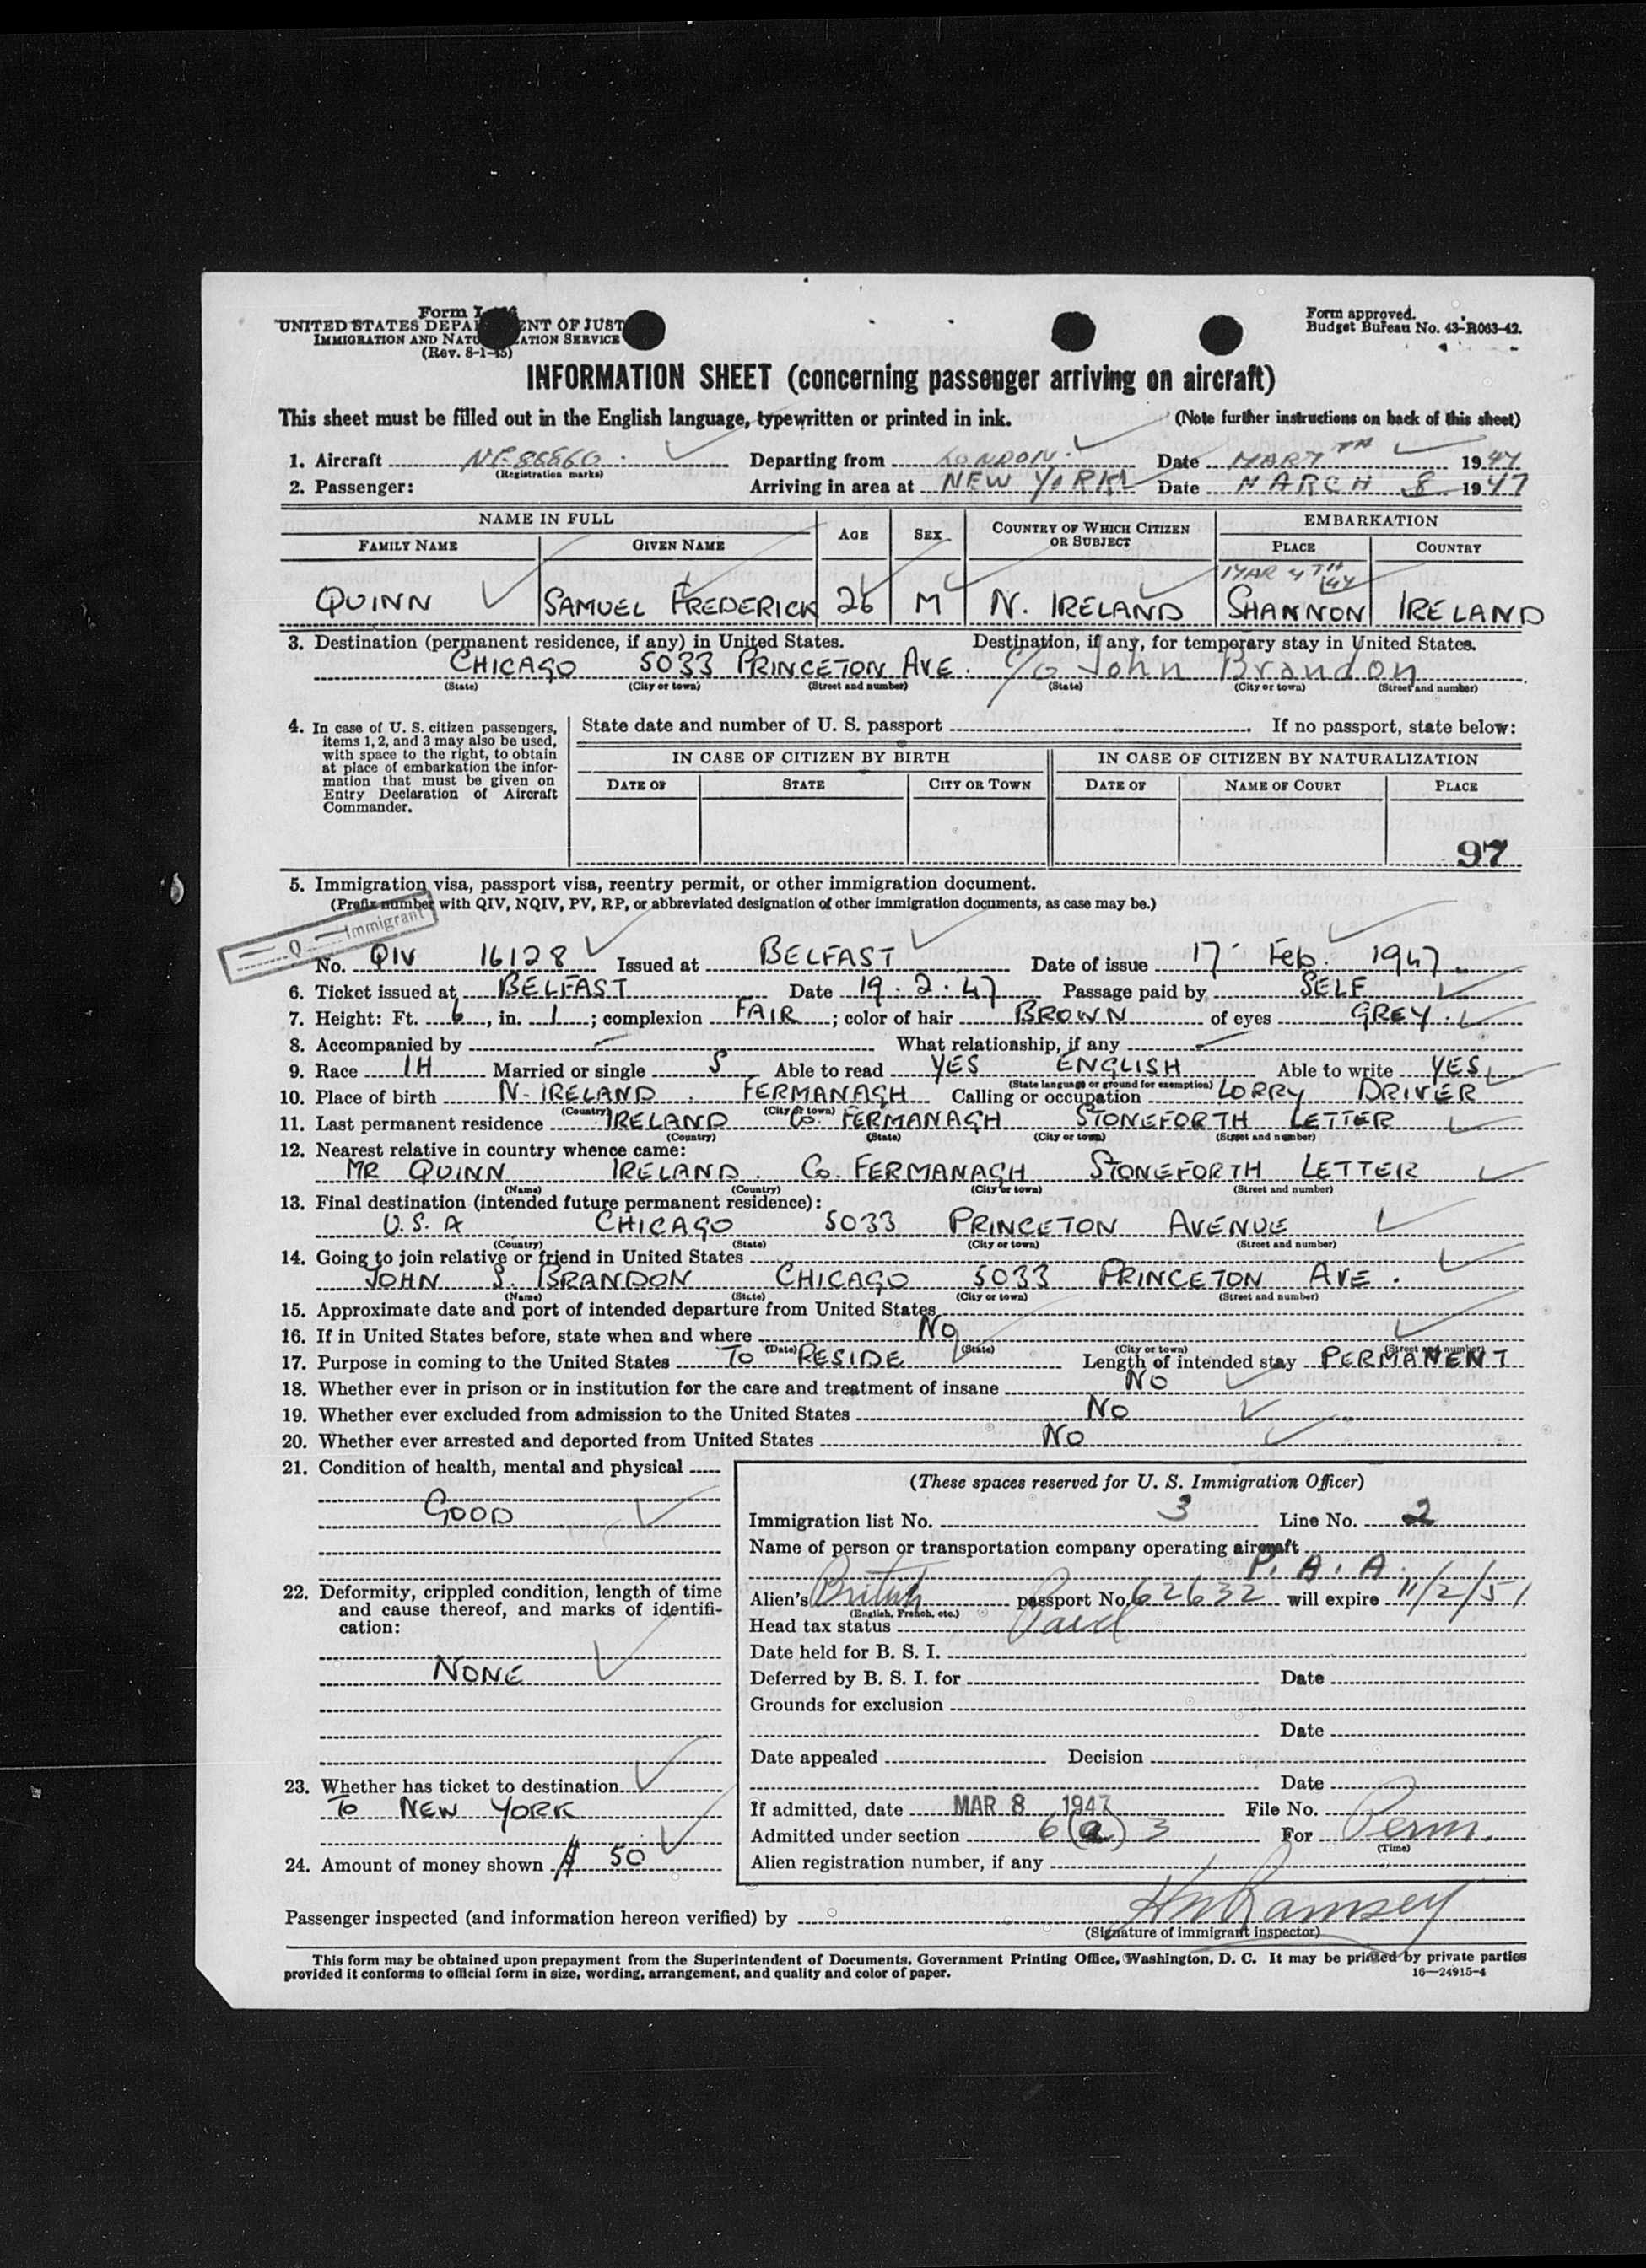 Form I-
UNITED STATES DEPA ENT OF JUST
IMMIGRATION AND NATU ATION SERVICE
(Rev. 8-1-45)
Form approved.
Budget Bureau No. 43-R063-42.
INFORMATION SHEET (concerning passenger arriving on aircraft)
This sheet must be filled out in the English language, typewritten or printed in ink. (Note further instructions on back of this sheet)
1. Aircraft (Registration marks) Departing from LONDON. Date MAR 7TH 1947
2. Passenger: Arriving in area at NEW YORK Date MARCH 8 1947
NAME IN FULL AGE SEX COUNTRY OF WHICH CITIZEN OR SUBJECT EMBARKATION
FAMILY NAME GIVEN NAME PLACE COUNTRY
QUINN SAMUEL FREDERICK 26 M N. IRELAND SHANNON IRELAND
3. Destination (permanent residence, if any) in United States. Destination, if any, for temporary stay in United States.
CHICAGO 5033 PRINCETON AVE. C/O John Brandon
(State) (City or town) (Street and number) (State) (City or town) (Street and number)
4. In case of U. S. citizen passengers, items 1, 2, and 3 may also be used, with space to the right, to obtain at place of embarkation the information that must be given on Entry Declaration of Aircraft Commander.
State date and number of U. S. passport If no passport, state below:
IN CASE OF CITIZEN BY BIRTH IN CASE OF CITIZEN BY NATURALIZATION
DATE OF STATE CITY OR TOWN DATE OF NAME OF COURT PLACE
97
5. Immigration visa, passport visa, reentry permit, or other immigration document.
(Prefix number with QIV, NQIV, PV, RP, or abbreviated designation of other immigration documents, as case may be.)
Q — Immigrant
No. QIV 16128 Issued at BELFAST Date of issue 17 Feb. 1947
6. Ticket issued at BELFAST Date 19.2.47 Passage paid by SELF
7. Height: Ft. 6, in. 1; complexion FAIR; color of hair BROWN of eyes GREY.
8. Accompanied by — What relationship, if any —
9. Race IH Married or single S Able to read YES ENGLISH Able to write YES
(State language or ground for exemption)
10. Place of birth N. IRELAND. FERMANAGH Calling or occupation LORRY DRIVER
(Country) (City or town)
11. Last permanent residence IRELAND Co. FERMANAGH STONEFORTH LETTER
(Country) (State) (City or town) (Street and number)
12. Nearest relative in country whence came:
MR QUINN IRELAND. Co. FERMANAGH STONEFORTH LETTER
(Name) (Country) (City or town) (Street and number)
13. Final destination (intended future permanent residence):
U.S.A CHICAGO 5033 PRINCETON AVENUE
(Country) (State) (City or town) (Street and number)
14. Going to join relative or friend in United States
JOHN S. BRANDON CHICAGO 5033 PRINCETON AVE.
(Name) (State) (City or town) (Street and number)
15. Approximate date and port of intended departure from United States
16. If in United States before, state when and where No
(Date) (State) (City or town) (Street and number)
17. Purpose in coming to the United States To RESIDE Length of intended stay PERMANENT
18. Whether ever in prison or in institution for the care and treatment of insane No
19. Whether ever excluded from admission to the United States No
20. Whether ever arrested and deported from United States No
21. Condition of health, mental and physical
GOOD
22. Deformity, crippled condition, length of time and cause thereof, and marks of identification:
NONE
23. Whether has ticket to destination
To NEW YORK
24. Amount of money shown $ 50
(These spaces reserved for U. S. Immigration Officer)
Immigration list No. 3 Line No. 2
Name of person or transportation company operating aircraft
P. A. A.
Alien's British passport No. 62632 will expire 11/2/51
(English, French, etc.)
Head tax status Paid
Date held for B. S. I.
Deferred by B. S. I. for Date
Grounds for exclusion
Date
Date appealed Decision
Date
If admitted, date MAR 8 1947 File No.
Admitted under section 6(a)3 For Perm.
(Time)
Alien registration number, if any
Passenger inspected (and information hereon verified) by Ramsey
(Signature of immigrant inspector)
This form may be obtained upon prepayment from the Superintendent of Documents, Government Printing Office, Washington, D. C. It may be printed by private parties
provided it conforms to official form in size, wording, arrangement, and quality and color of paper. 16—24915-4